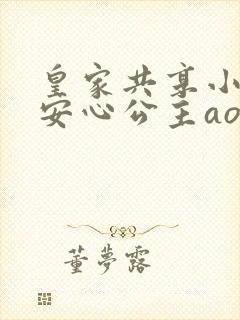 皇家共享小
安心公主ao
董夢露